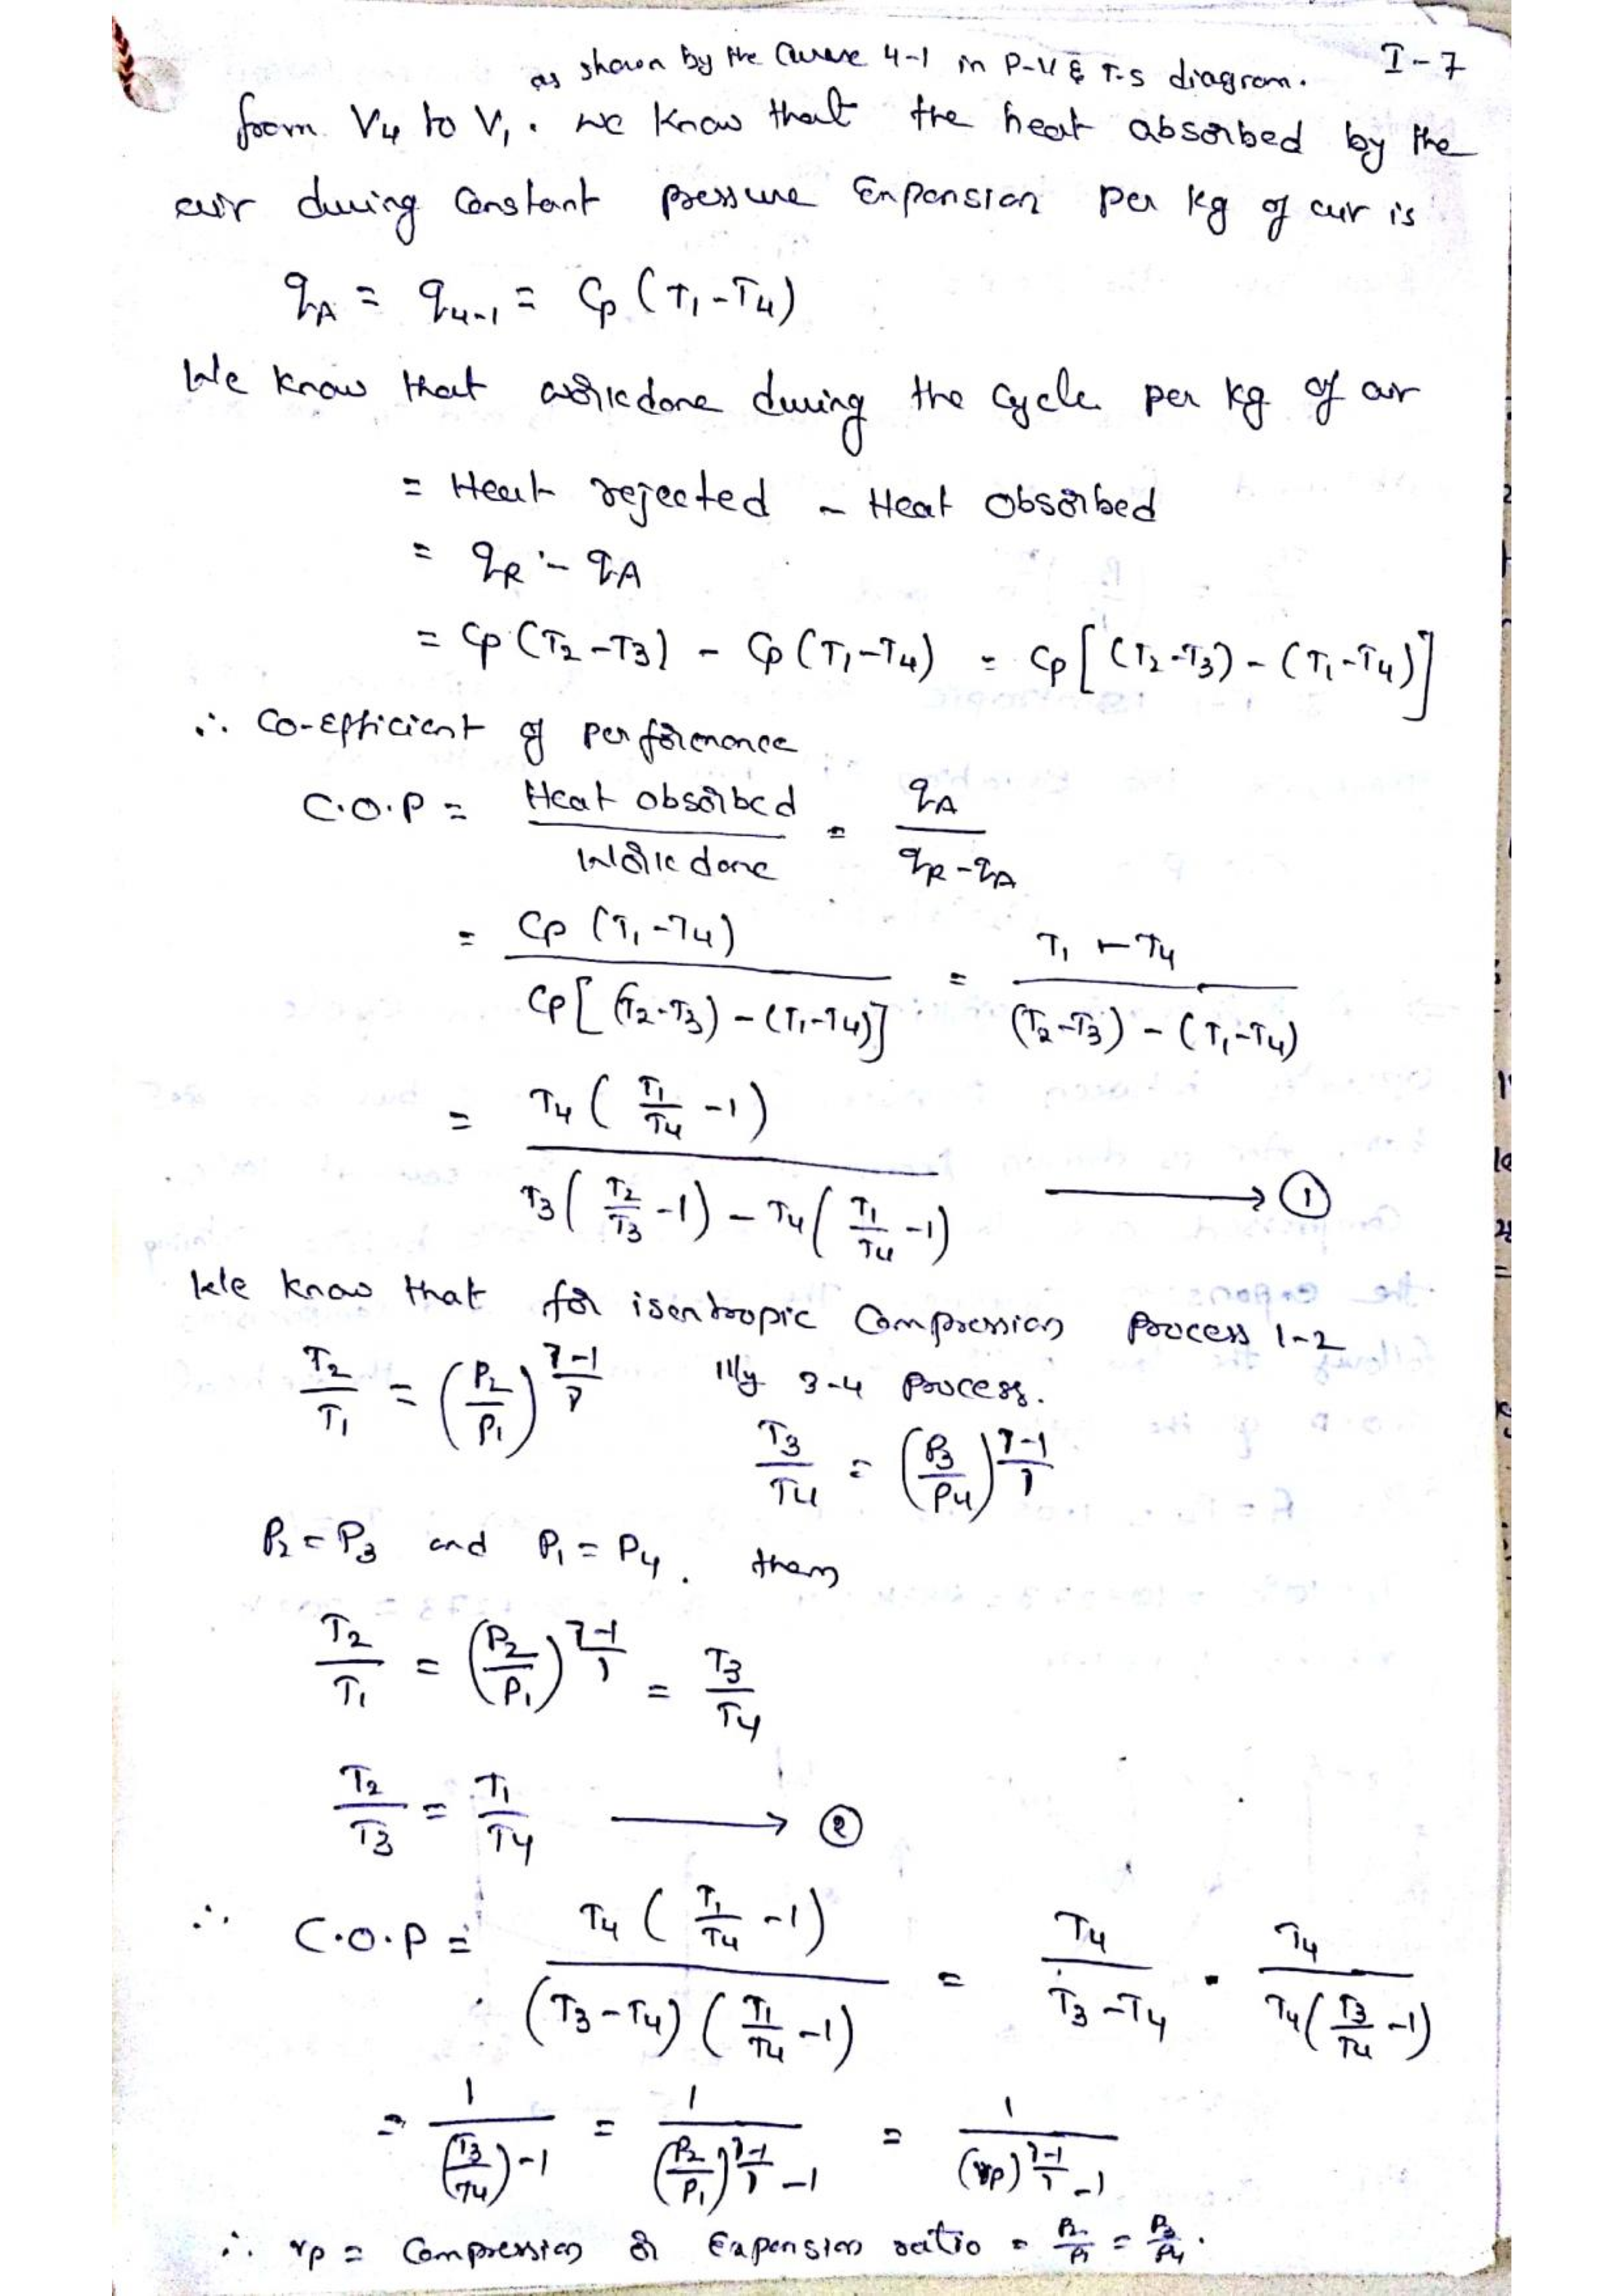 I-7
as shown by the Curve 4-1 in P-V & T-S diagram.
from V4 to V1. we know that the heat absorbed by the
air during Constant pressure Expansion per kg of air is
qA = q4-1 = Cp (T1-T4)
We know that workdone during the cycle per kg of air
= Heat rejected - Heat absorbed
= qR - qA
= Cp (T2-T3) - Cp (T1-T4) = Cp [(T2-T3) - (T1-T4)]
∴ Co-efficient of performance
C.O.P = Heat absorbed / Work done = qA / (qR-qA)
= Cp (T1-T4) / Cp[(T2-T3) - (T1-T4)] = T1-T4 / (T2-T3) - (T1-T4)
= T4 (T1/T4 -1) / T3 (T2/T3 -1) - T4 (T1/T4 -1) → ①
We know that for isentropic Compression process 1-2
T2/T1 = (P2/P1)^(γ-1/γ) Illy 3-4 process.
T3/T4 = (P3/P4)^(γ-1/γ)
P2 = P3 and P1 = P4. then
T2/T1 = (P2/P1)^(γ-1/γ) = T3/T4
T2/T3 = T1/T4 → ②
∴ C.O.P = T4 (T1/T4 -1) / (T3-T4) (T1/T4 -1) = T4 / T3-T4 = T4 / T4 (T3/T4 -1)
= 1 / (T3/T4) -1 = 1 / (P2/P1)^(γ-1/γ) -1 = 1 / (rp)^(γ-1/γ) -1
∴ rp = Compression or Expansion ratio = P2/P1 = P3/P4.